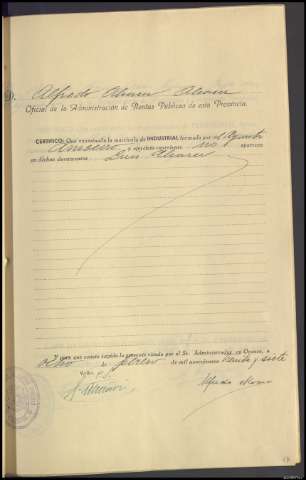 D. Alfredo Alvarez Alvarez
Oficial de la Administración de Rentas Públicas de esta Provincia.
CERTIFICO: Que examinada la matrícula de INDUSTRIAL formada por el
a ejercicio corriente, no aparece
en dichos documentos Luis Alvarez
Y para que conste expido la presente visada por el Sr. Administrador, en Orense, a
ocho de febrero de mil novecientos treinta y siete
V.º B.º
Alfredo Alvarez